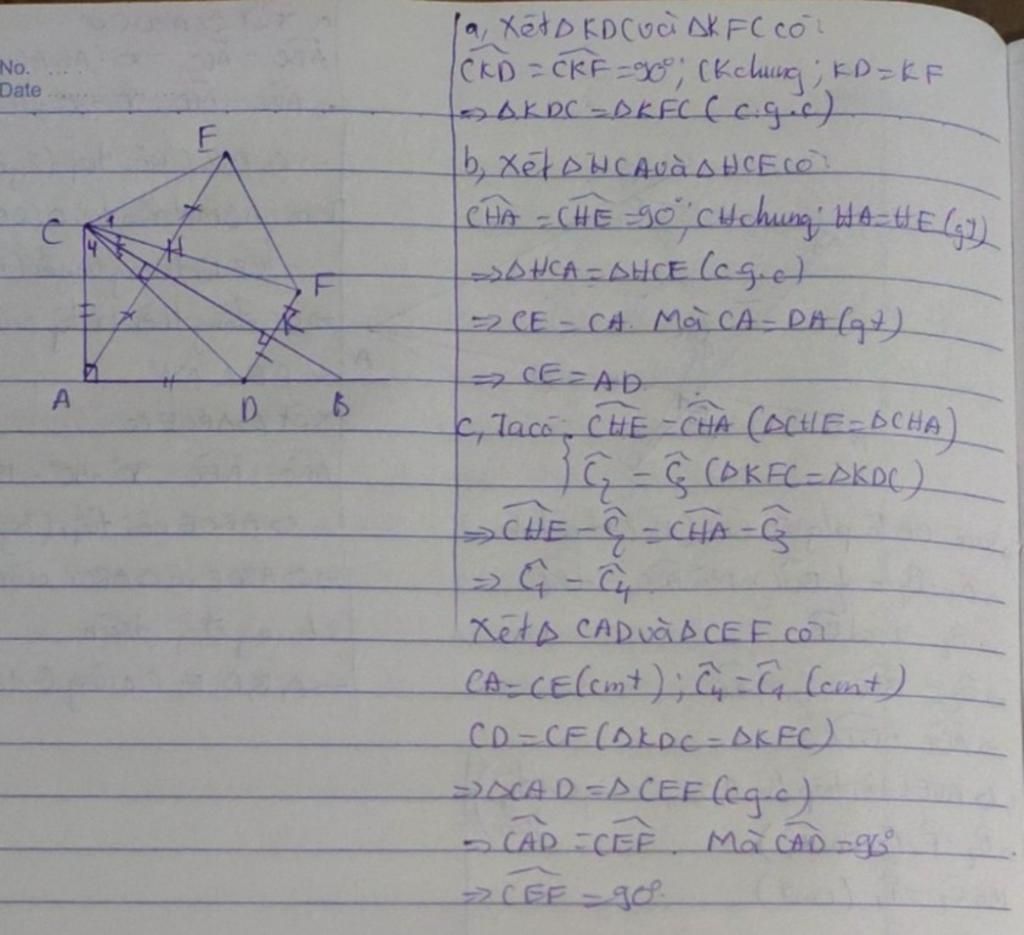 No. ....
Date ......
E
C
1
4
H
F
K
A
D
B
a, Xét ΔKDC và ΔKFC có:
$\widehat{CKD}$ = $\widehat{CKF}$ = 90°; CK chung; KD = KF
⇒ ΔKDC = ΔKFC (c.g.c)
b, Xét ΔHCA và ΔHCE có:
$\widehat{CHA}$ = $\widehat{CHE}$ = 90°; CH chung; HA = HE (gt)
⇒ ΔHCA = ΔHCE (c.g.c)
⇒ CE = CA. Mà CA = DA (gt)
⇒ CE = AD
c, Ta có: $\widehat{CHE}$ = $\widehat{CHA}$ (ΔCHE = ΔCHA)
$\widehat{C_2}$ = $\widehat{C_3}$ (ΔKFC = ΔKDC)
⇒ $\widehat{CHE}$ - $\widehat{C_2}$ = $\widehat{CHA}$ - $\widehat{C_3}$
⇒ $\widehat{C_1}$ = $\widehat{C_4}$
Xét Δ CAD và ΔCEF có:
CA = CE (cmt); $\widehat{C_4}$ = $\widehat{C_1}$ (cmt)
CD = CF (ΔKDC = ΔKFC)
⇒ ΔCAD = ΔCEF (c.g.c)
⇒ $\widehat{CAD}$ = $\widehat{CEF}$. Mà $\widehat{CAD}$ = 90°
⇒ $\widehat{CEF}$ = 90°.